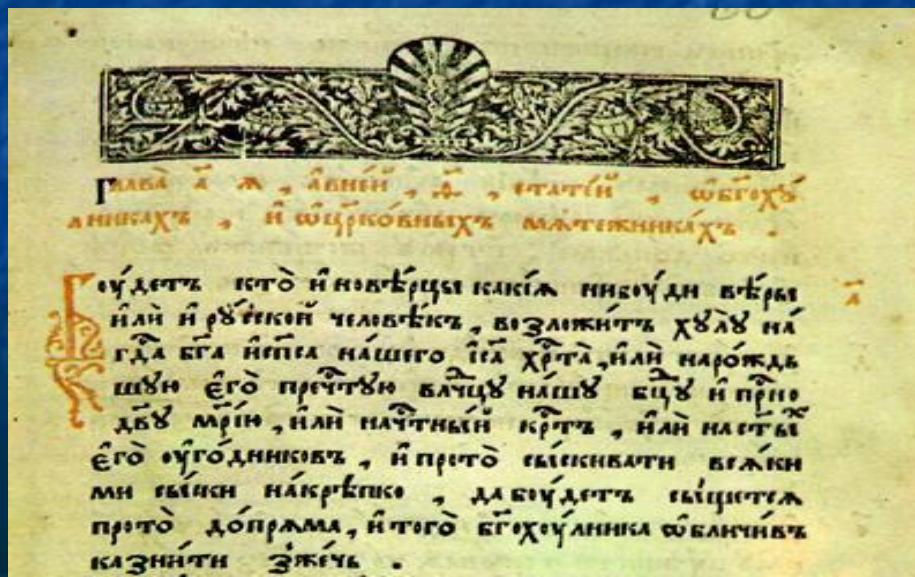 Глава̀ а҃ ѧ , а҆вне́й , ѳ҃ , стате́й , ѡ҆бг҃охꙋ́
лникахъ , и҆ ѡ҆цр҃ко́вныхъ мѧте́жника́хъ .
Боу́детъ кто̀ и҆нове́рцы какі́ѧ нибоу́ди вѣ́ры
и҆лѝ и҆ рꙋ́сской человѣ́къ , возложи́тъ хꙋлꙋ̀ на́
гдⷭ҇а бг҃а и҆ сп҃са на́шего і҆са҃ хрⷭ҇та̀ , и҆лѝ наро́ждь
шꙋю є҆го̀ пречⷭ҇тꙋю влⷣчцꙋ на́шꙋ бцⷣꙋ и҆ прⷭ҇но
дв҃ꙋ мр҃і́ю , и҆лѝ начⷭ҇тны́й крⷭ҇тъ , и҆лѝ насты҃ⷯ
є҆го̀ оу҆го́дниковъ , и҆ прото̀ сы́скивати всѧ́ки
ми сы́ски на́крѣпко , да боу́детъ сы́щетсѧ
прото̀ до́прѧма , и҆ того̀ бг҃охоу́лника ѡ҆бличи́въ
казни́ти зже́чь .
а҃